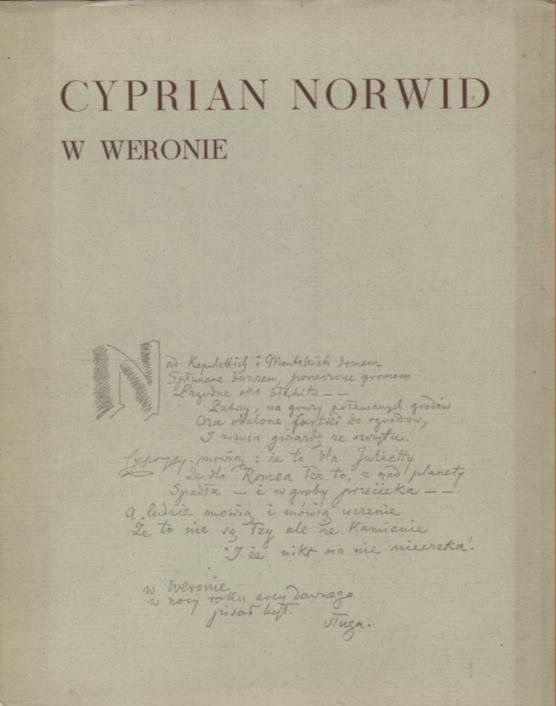 CYPRIAN NORWID
W WERONIE
Nad Kapuletich i Montekich domem
Spłukane deszczem, poruszone gromem
Łagodne oko błękitu — —
Patrzy, na gruzy połamanych grodów
Oraz obalone furtki do ogrodów,
I zrzuca gwiazdę ze szczytu.
Cyprysy mówią: że to dla Julietty
Że dla Romea łza to, z nad planety
Spadła — i w groby przecieka — —
A ludzie mówią i mówią uczenie
Że to nie są łzy ale że kamienie
I że nikt na nie nieczeka!
w Weronie
w nocy roku arcy dawnego
pisał był.
sługa.